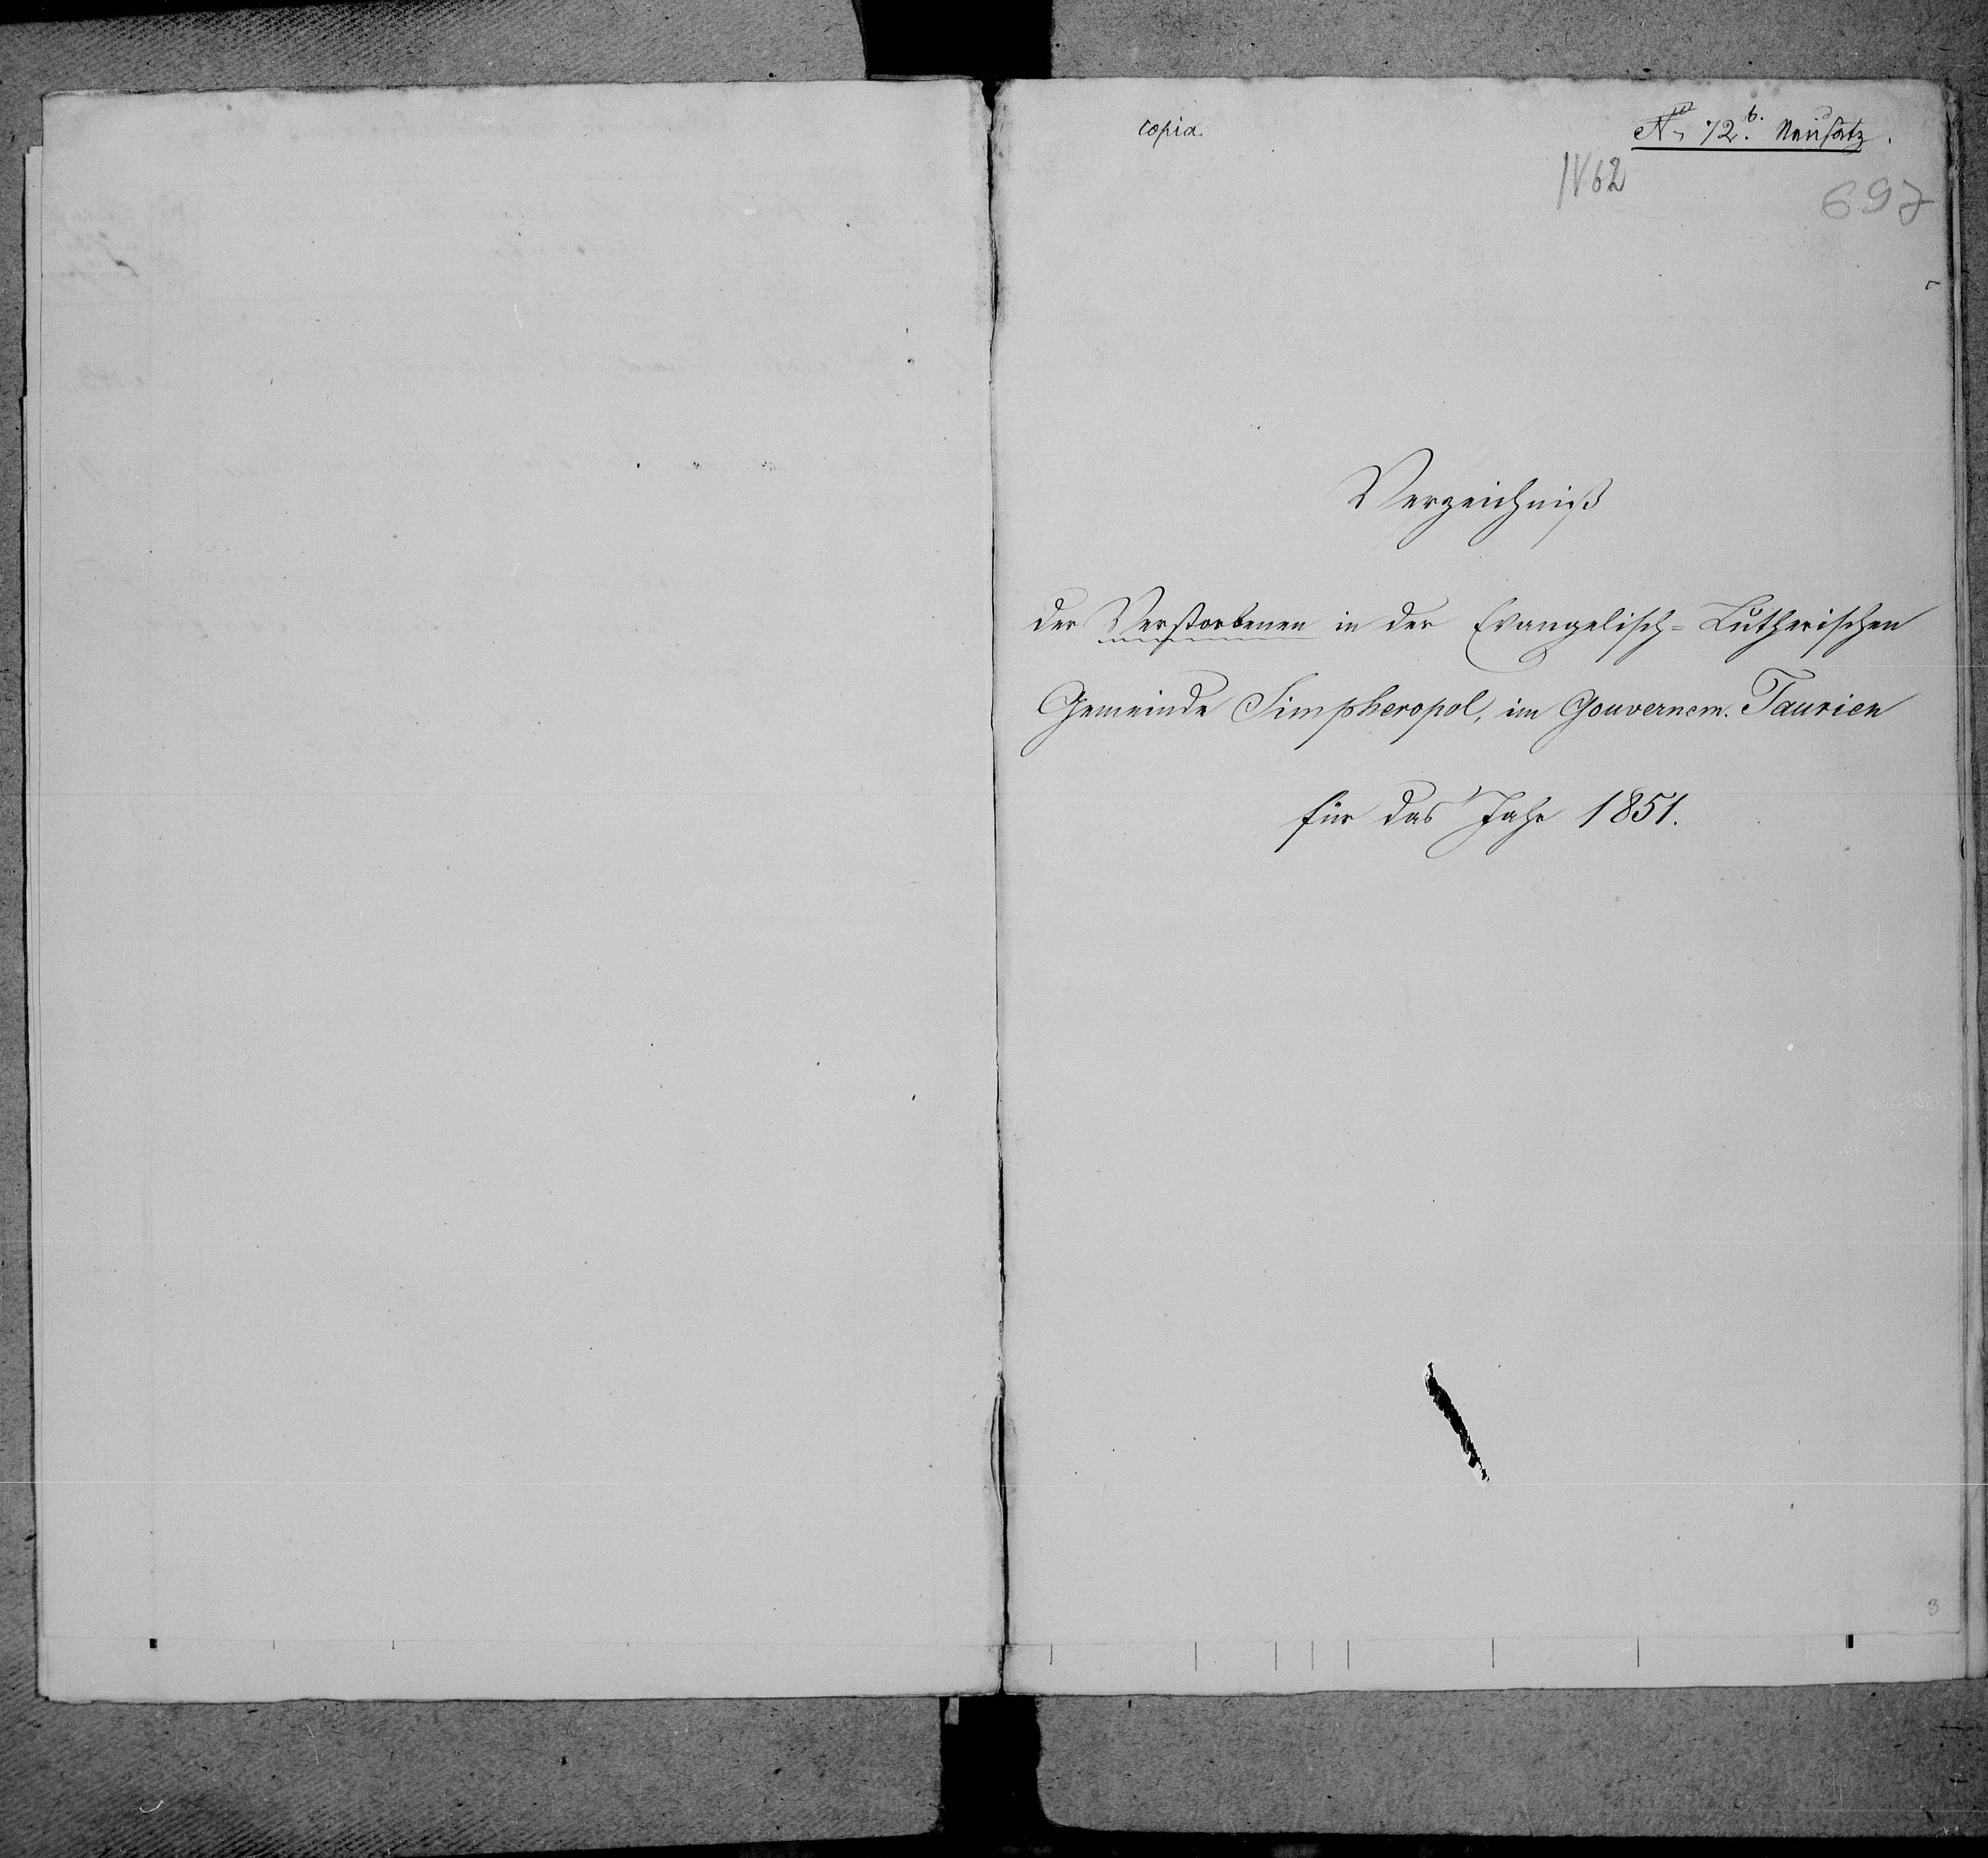 copia.
№ 72.b. Neusatz.
IV 62
697
Verzeichniß
der Verstorbenen in der Evangelisch=Lutherischen
Gemeinde Simpheropol, im Gouvernem. Taurien
für das Jahr 1851.
3